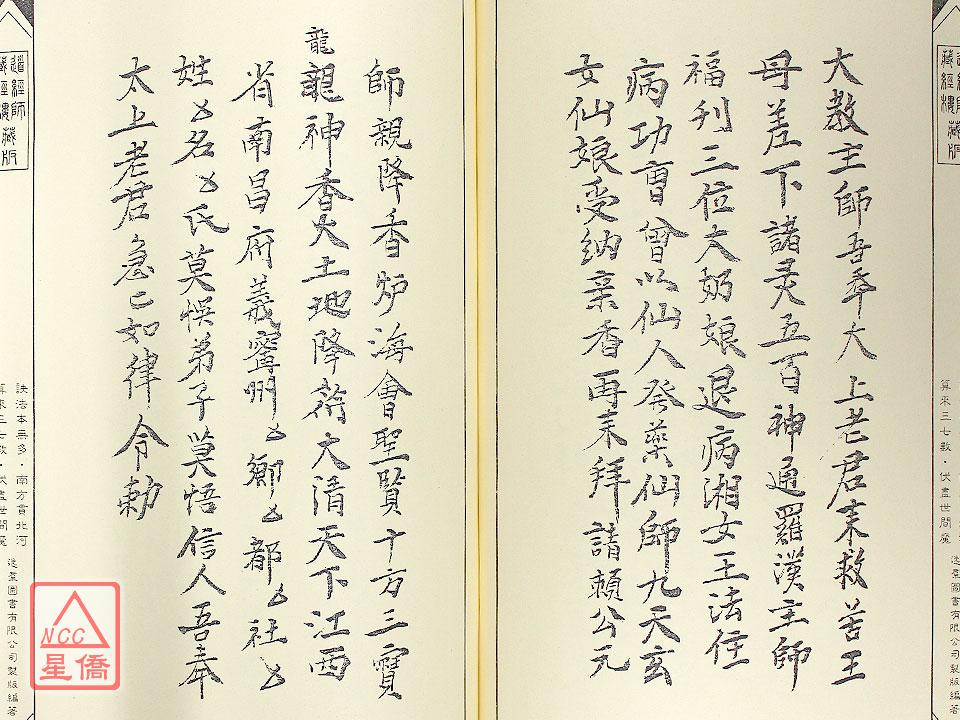 大教主師吾奉大上老君末救苦王
母差下諸灵五百神通羅漢主師
福刋三位大奶娘退病湘女王法住
病功曺曾以仙人癸藥仙師九天玄
女仙娘受纳亲香再末拜請賴公元
師親降香炉海會聖賢十方三寶
龍
龍神香火土地降蒞大清天下江西
省南昌府義寧州〻鄉〻都〻社〻
姓〻名〻氏莫悮弟子莫悟信人吾奉
太上老君急〻如律令勅
道經師
藏經樓藏版
訣法本無多·南方貫北河
算來三七數·伏盡世間魔
逸羣圖書有限公司製版編著
道經師
藏經樓藏版
算來三七數·伏盡世間魔
逸羣圖書有限公司製版編著
NCC
星僑